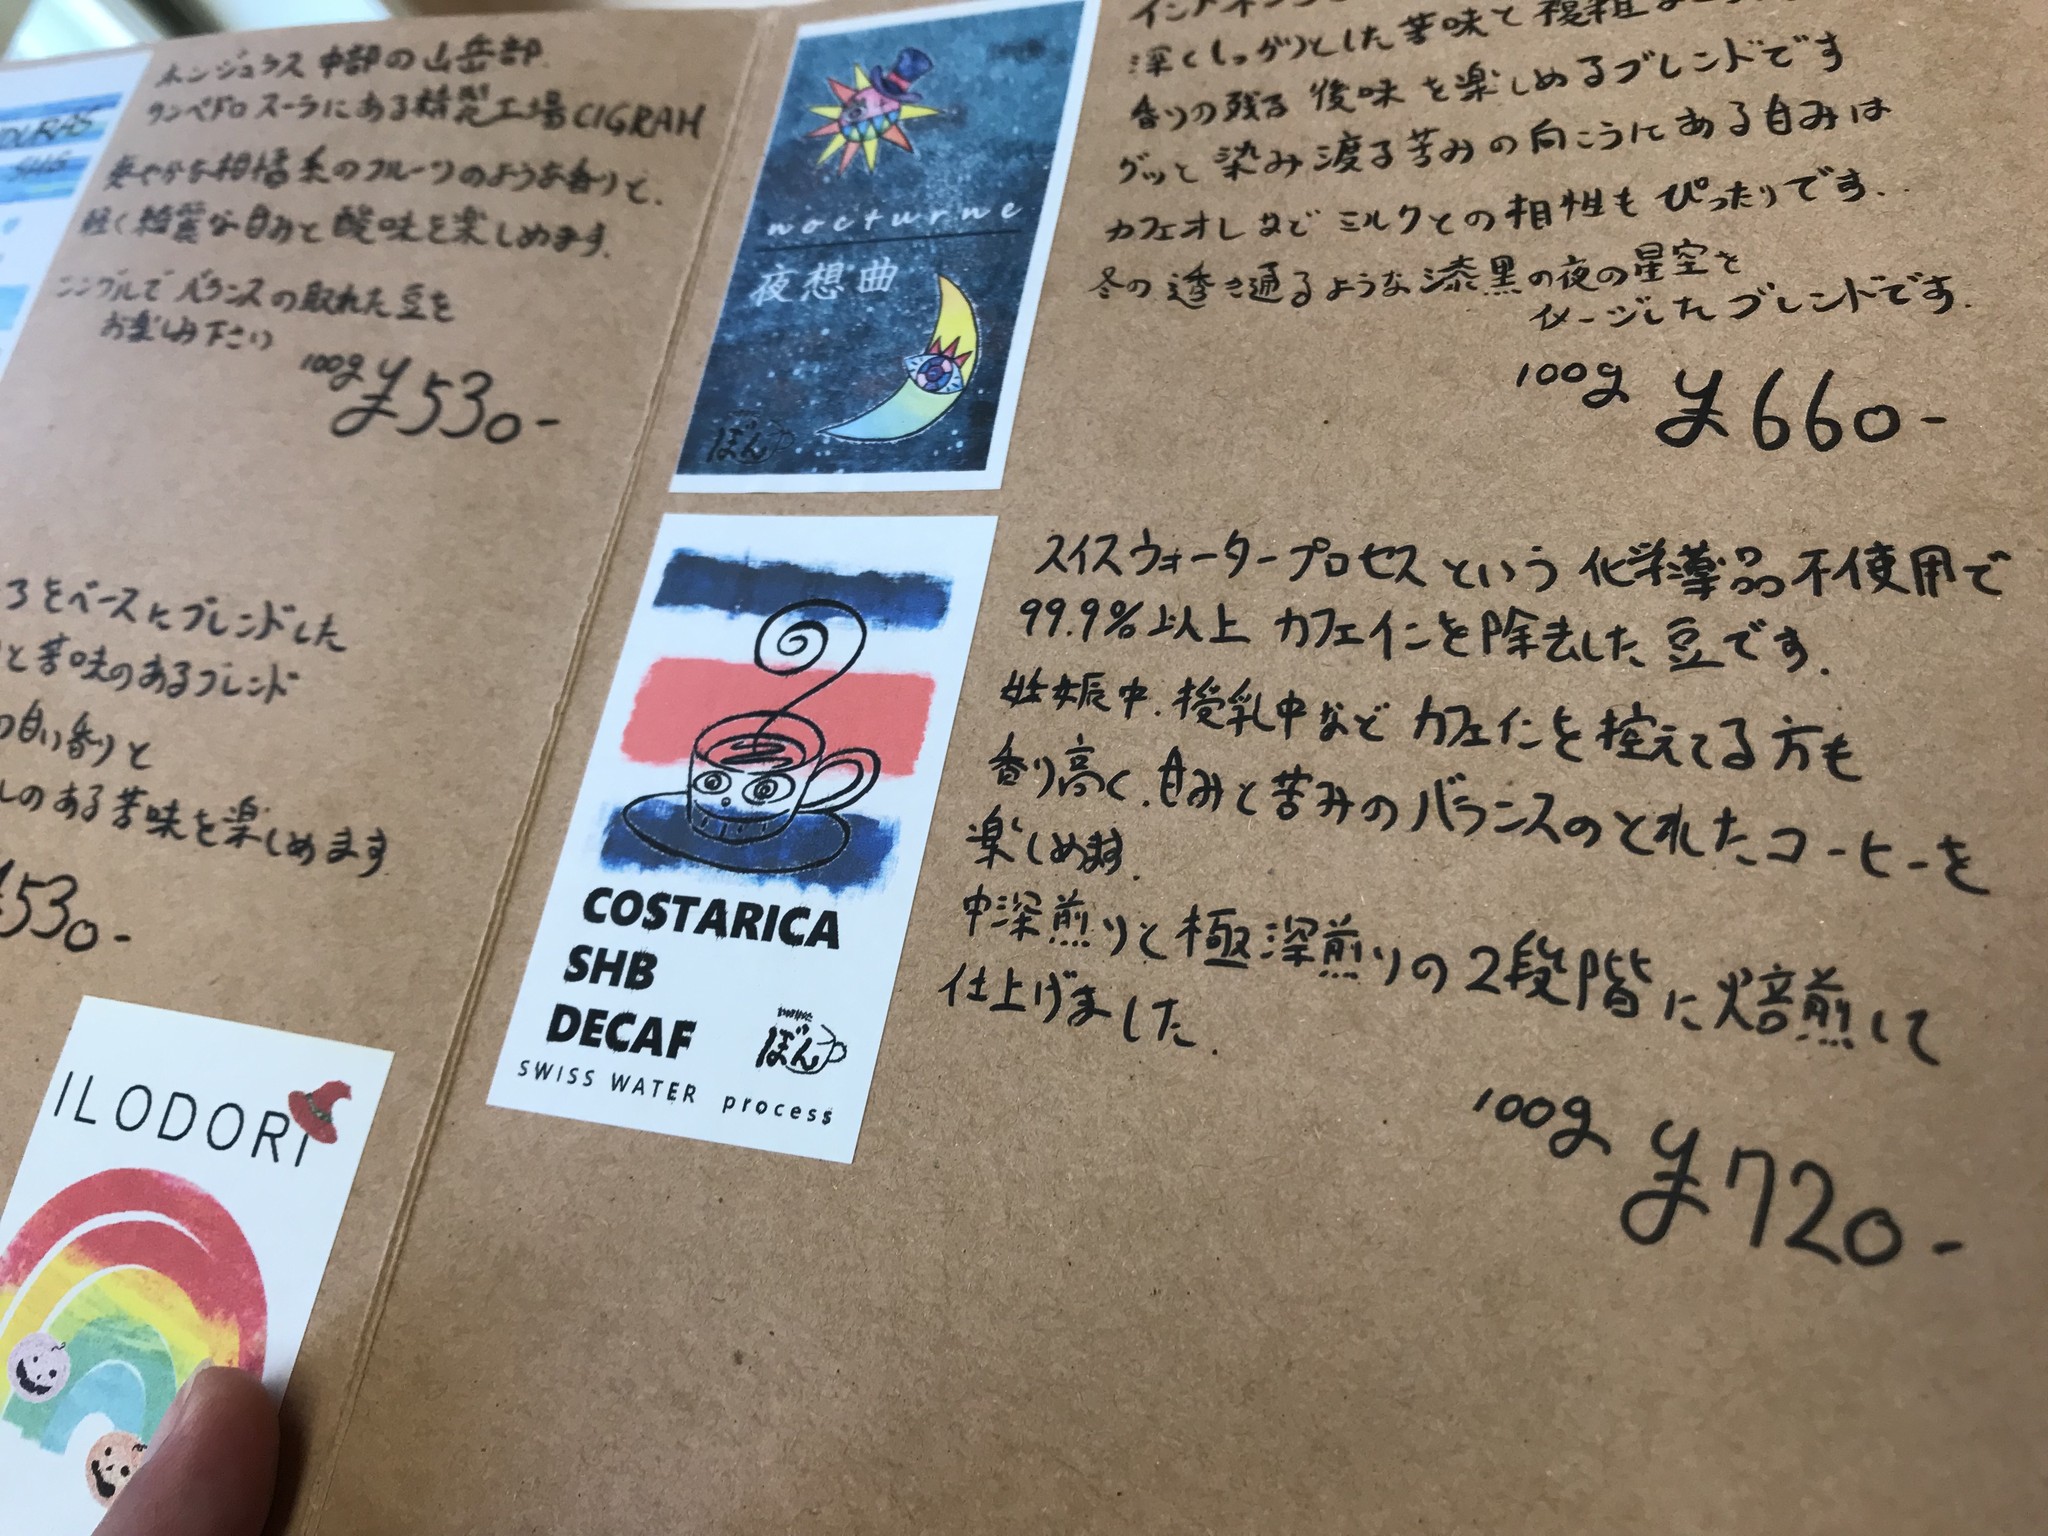 DURAS
SHG
ホンジュラス 中部の山岳部.
サンペドロ スーラにある精製工場CIGRAH
爽やかな柑橘系のフルーツのような香りと、
軽く綺麗な甘みと酸味を楽しめます.
シングルで バランスの取れた豆を
お楽しみ下さい
100g ¥530-
ろをベースにブレンドした
と苦味のあるブレンド
の甘い香りと
しのある苦味を楽しめます
¥530-
ILODORI
nocturne
夜想曲
ぼん
深くしっかりとした苦味と複雑
香りの残る 後味 を楽しめるブレンドです
グッと 染み渡る苦みの向こうにある甘みは
カフェオレなど ミルクとの相性も ぴったりです.
冬の透き通るような漆黒の夜の星空を
イメージしたブレンドです.
100g ¥660-
COSTARICA
SHB
DECAF
ぼん
SWISS WATER process
スイスウォータープロセスという 化学薬品不使用で
99.9%以上 カフェインを除去した豆です.
妊娠中.授乳中など カフェインを控えてる方も
香り高く.甘みと苦みのバランスのとれたコーヒーを
楽しめます.
中深煎りと極深煎りの2段階に焙煎して
仕上げました.
100g ¥720-